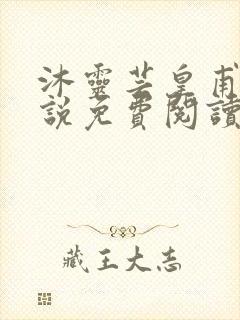 沐靈芸皇甫
說免費閱讀
藏王大志